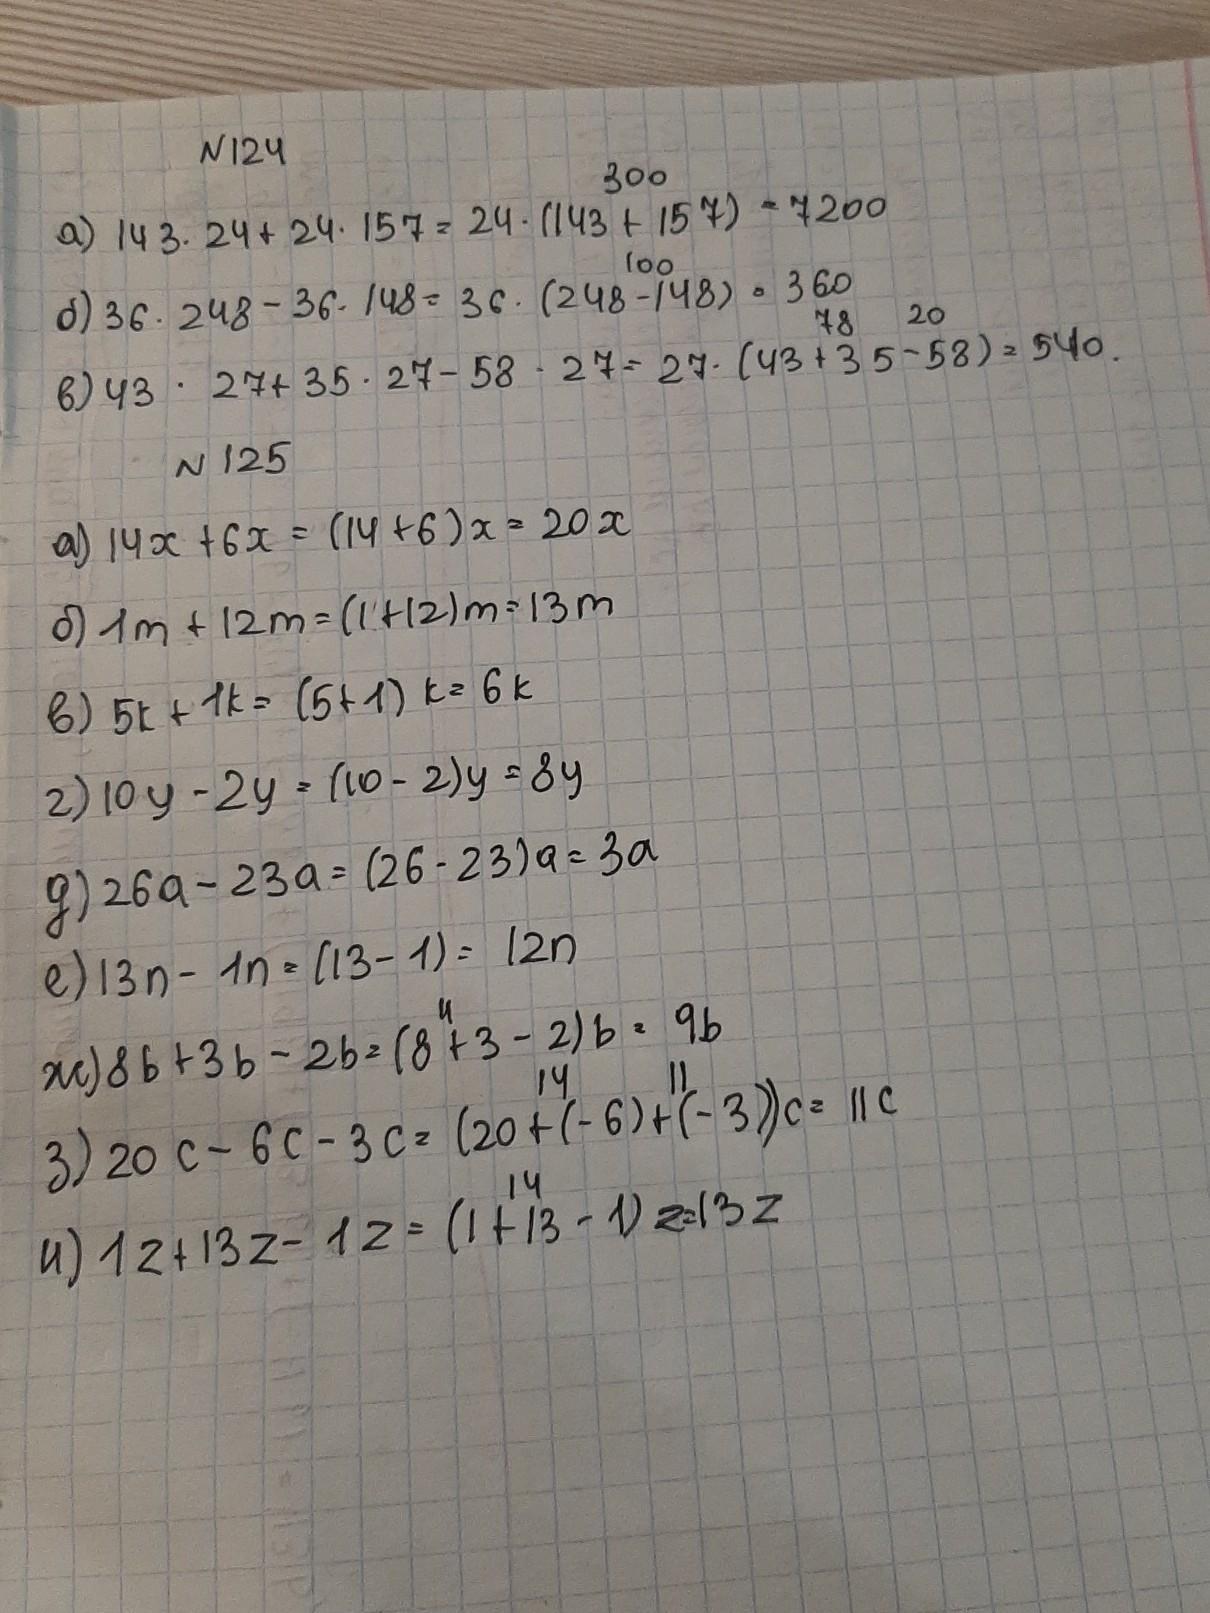 N124
300
а) 143. 24 + 24. 157 = 24 · (143 + 157) = 7200
100
б) 36. 248 - 36. 148 = 36. (248 - 148) = 360
78 20
в) 43 · 27 + 35 · 27 - 58 · 27 = 27. (43 + 35 - 58) = 540.
N 125
а) 14x + 6x = (14 + 6)x = 20x
б) 1m + 12m = (1 + 12)m = 13m
в) 5k + 1k = (5 + 1) k = 6k
г) 10y - 2y = (10 - 2)y = 8y
д) 26a - 23a = (26 - 23)a = 3a
е) 13n - 1n = (13 - 1) = 12n
11
ж) 8b + 3b - 2b = (8 + 3 - 2)b = 9b
14 11
з) 20c - 6c - 3c = (20 + (-6) + (-3))c = 11c
14
и) 1z + 13z - 1z = (1 + 13 - 1) z = 13z